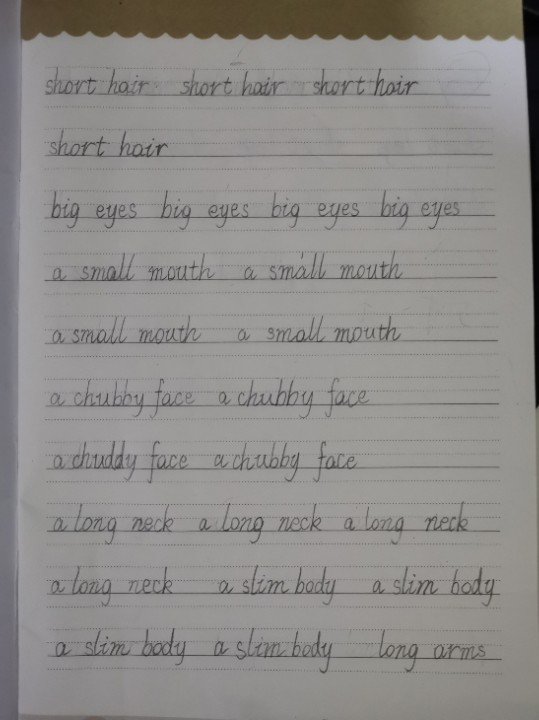 short hair short hair short hair
short hair
big eyes big eyes big eyes big eyes
a small mouth a small mouth
a small mouth a small mouth
a chubby face a chubby face
a chuddy face a chubby face
a long neck a long neck a long neck
a long neck a slim body a slim body
a slim body a slim body long arms